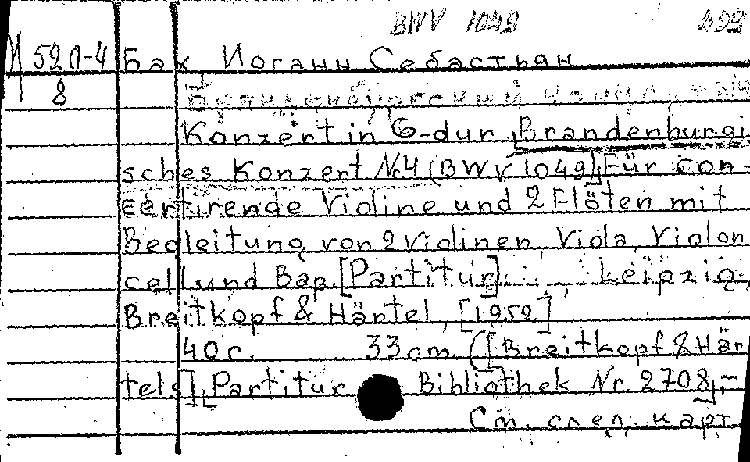 BWV 1049
М 52П-4 Бах Иоганн Себастьян
8 Бранденбургский
Konzert in G-dur, Brandenburgi
sches Konzert Nr.4 (BWV 1049). Für con-
certirende Violine und 2 Flöten mit
Begleitung von 2 Violinen, Viola, Violon
cell und Bap. [Partitur] Leipzig,
Breitkopf & Härtel, [1959]
40 с. 33 cm. ([Breitkopf & Här
tels], Partitur Bibliothek Nr. 2708).-
См. след. карт.